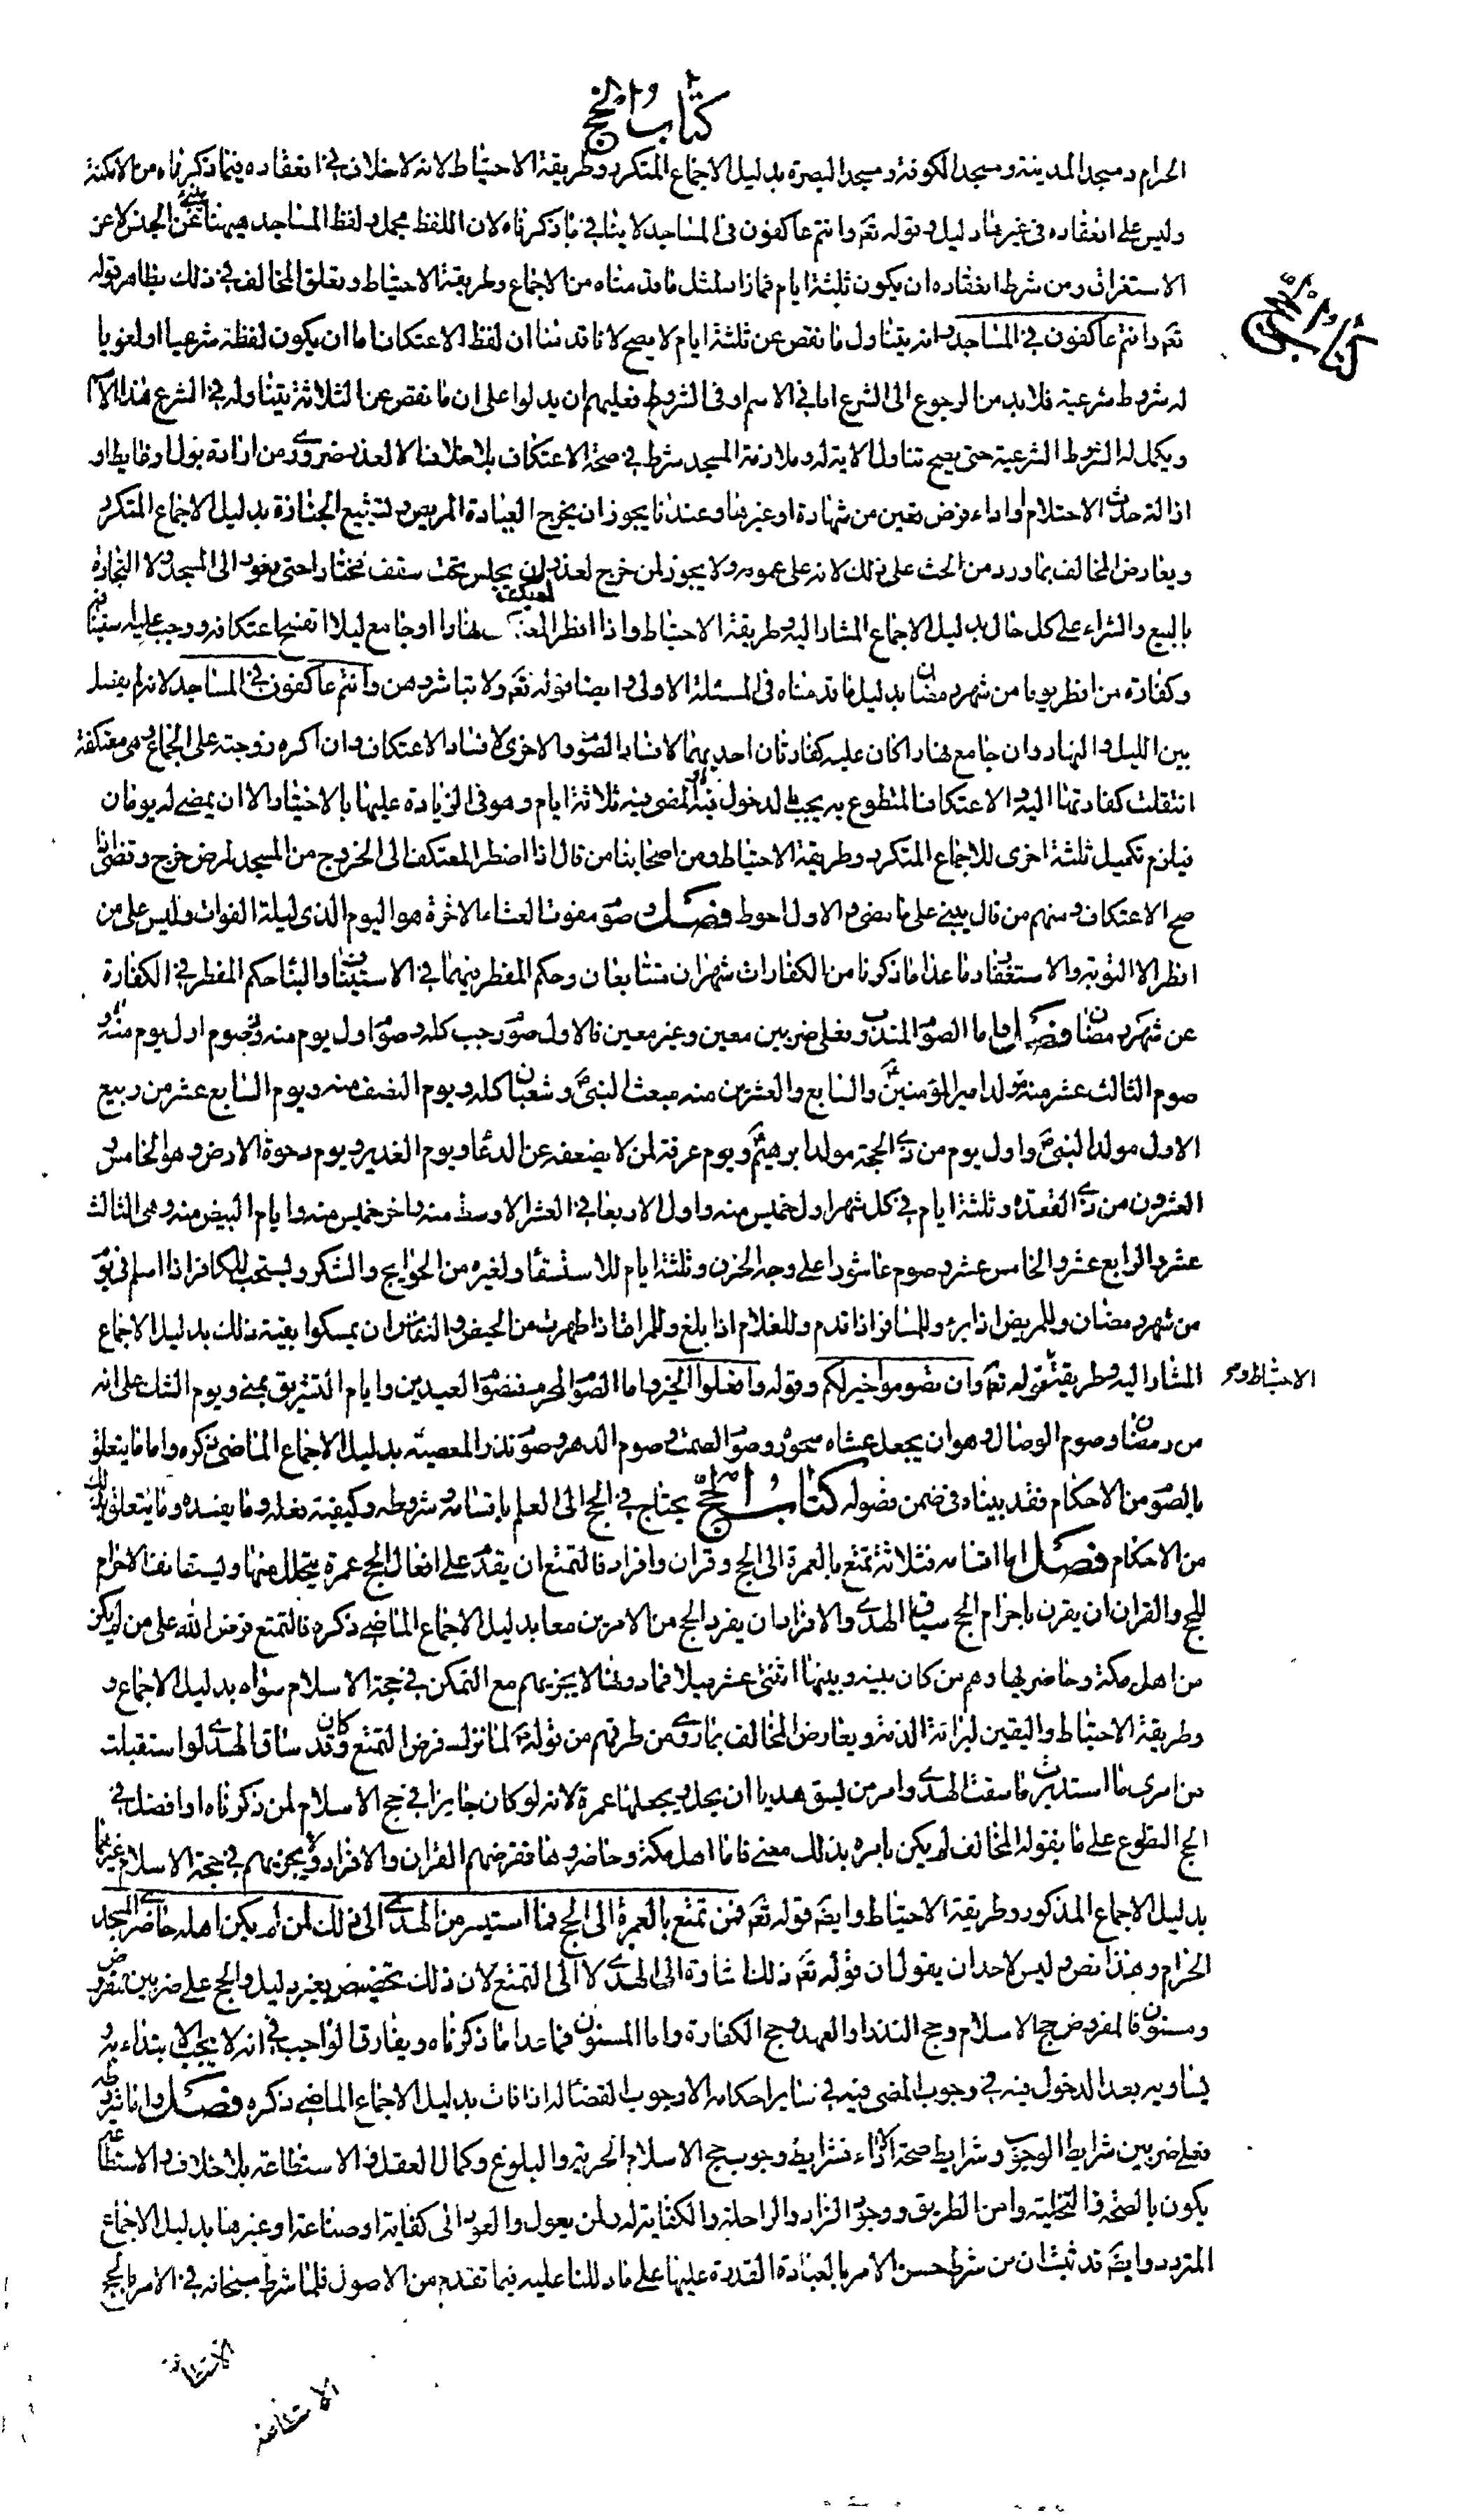 كتاب الحج
الحرام ومسجد المدينة ومسجد الكوفة ومسجد البصرة بدليل الاجماع المتكرر وطريقة الاحتياط لانه لا خلاف في انعقاده فيما ذكرناه من الامكنة
وليس على انعقاده في غيرها دليل وقوله تعم وانتم عاكفون في المساجد لا ينافي ما ذكرناه لان اللفظ مجمل ولفظ المساجد هيهنا عن الجنس لا عن
الاستغراق ومن شرط انعقاده ان يكون ثلثة ايام فما زاد لمثل ما قدمناه من الاجماع وطريقة الاحتياط وتعلق المخالف في ذلك بظاهر قوله
كتاب الحج
تعم وانتم عاكفون في المساجد وانه يتناول ما نقص عن ثلثة ايام لا يصح لانا قد بينا ان لفظ الاعتكاف اما ان يكون لفظة شرعيا او لغويا
له شروط شرعية فلا بد من الرجوع الى الشرع اما في الاسم او في الشروط فعليهم ان يدلوا على ان ما نقص عن الثلاثة يتناوله في الشرع هذا الاسم
ويكمل له الشروط الشرعية حتى يصح تناول الاية له وملازمة المسجد شرط في صحة الاعتكاف بلا خلاف الا لعذر ضروري من ارادة بول او غايط او
ازالة حدث الاحتلام او اداء فرض تعين من شهادة او غيرها وعندنا يجوز ان يخرج لعيادة المريض وتشييع الجنازة بدليل الاجماع المتكرر
ويعارض المخالف بما ورد من الحث على ذلك لانه على عمومه ولا يجوز لمن خرج لعذر ان يجلس تحت سقف مختارا حتى يعود الى المسجد ولا التجارة
بالبيع والشراء على كل حال بدليل الاجماع المشار اليه وطريقة الاحتياط واذا افطر المعتكف نهارا او جامع ليلا انفسخ اعتكافه ووجب عليه استينافه
وكفارة من افطر يوما من شهر رمضان بدليل ما قدمناه في المسئلة الاولى وايضا فقوله تعم ولا تباشروهن وانتم عاكفون في المساجد لانه لم يفصل
بين الليل والنهار وان جامع نهارا كان عليه كفارتان احديهما لافساد الصوم والاخرى لافساد الاعتكاف وان اكره زوجته على الجماع وهي معتكفة
انتقلت كفارتها اليه والاعتكاف المتطوع به يجب بالدخول فيه المضي فيه ثلاثة ايام وهو في الزيادة عليها بالاختيار الا ان يمضي له يومان
فيلزم تكميل ثلثة اخرى للاجماع المتكرر وطريقة الاحتياط ومن اصحابنا من قال اذا اضطر المعتكف الى الخروج من المسجد لمرض خرج وقضى اذا
صح الاعتكاف ومنهم من قال يبني على ما مضى والاول احوط فصل وصوم مفوت العشاء الاخرة هو اليوم الذي ليلة الفوات وليس على من
افطر الا التوبة والاستغفار وما عدا ما ذكرنا من الكفارات شهران متتابعان وحكم المفطر فيهما في الاستيناف والبناء حكم المفطر في الكفارة
عن شهر رمضان فصل واما الصوم المندوب فعلى ضربين معين وغير معين فالاول صوم رجب كله وصوم اول يوم منه وصوم اول يوم منه و
صوم الثالث عشر منه مولد امير المؤمنين والسابع والعشرين منه مبعث النبي وشعبان كله ويوم النصف منه ويوم السابع عشر من ربيع
الاول مولد النبي واول يوم من ذي الحجة مولد ابرهيم ويوم عرفة لمن لا يضعفه عن الدعاء ويوم الغدير ويوم دحوة الارض وهو الخامس و
العشرون من ذي القعدة وثلثة ايام في كل شهر اول خميس منه واول الاربعاء في العشر الاوسط منه واخر خميس منه وايام البيض منه وهي الثالث
عشر والرابع عشر والخامس عشر وصوم عاشورا على وجه الحزن وثلثة ايام للاستسقاء ولغيره من الحوايج والشكر ويستحب للكافر اذا اسلم في يوم
من شهر رمضان وللمريض اذا برء وللمسافر اذا قدم وللغلام اذا بلغ وللمراة اذا طهرت من الحيض والنفاس ان يمسكوا بقية ذلك بدليل الاجماع
المشار اليه وطريقة قوله تعم وان تصوموا خير لكم وقوله وافعلوا الخير واما الصوم المحرم فصوم العيدين وايام التشريق بمنى ويوم الشك على انه
الاحتياط و
من رمضان وصوم الوصال وهو ان يجعل عشاه سحوره وصوم الصمت وصوم الدهر وصوم نذر المعصية بدليل الاجماع الماضي ذكره واما ما يتعلق
بالصوم من الاحكام فقد بيناه في ضمن فصوله كتاب الحج يحتاج في الحج الى العلم باقسامه وشروطه وكيفية فعله وما يفسده وما يتعلق بذلك
من الاحكام فصل اما اقسامه فثلاثة تمتع بالعمرة الى الحج وقران وافراد فالتمتع ان يقدم على افعال الحج عمرة يتحلل منها ويستانف الاحرام
للحج والقران ان يقرن باحرام الحج سياق الهدي والافراد ان يفرد الحج من الامرين معا بدليل الاجماع الماضي ذكره فالتمتع فرض الله على من لم يكن
من اهل مكة وحاضريها وهم من كان بينه وبينها اثنى عشر ميلا فما دونها لا يجزيهم مع التمكن في حجة الاسلام سواه بدليل الاجماع و
وطريقة الاحتياط واليقين لبراءة الذمة ويعارض المخالف بما روي من طرقهم من قوله لما نزل فرض التمتع وقد كان ساق الهدي لو استقبلت
من امري ما استدبرت ما سقت الهدي وامر من لم يسق هديا ان يحل ويجعلها عمرة لانه لو كان جايزا في حج الاسلام لمن ذكرناه او افضل في
الحج التطوع على ما يقوله المخالف لم يكن بامره بذلك معنى فاما اهل مكة وحاضروها ففرضهم القران والافراد ولا يجزيهم في حجة الاسلام غيرهما
بدليل الاجماع المذكور وطريقة الاحتياط وايضم قوله تعم فمن تمتع بالعمرة الى الحج فما استيسر من الهدي الى ذلك لمن لم يكن اهله حاضري المسجد
الحرام وهذا نص وليس لاحد ان يقول ان قوله تعم ذلك اشارة الى الهدي لا الى التمتع لان ذلك تخصيص بغير دليل والحج على ضربين مفروض
ومسنون فالمفروض حج الاسلام وحج النذر او العهد وحج الكفارة واما المسنون فما عدا ما ذكرناه ويفارق الواجب في انه لا يجب الابتداء به و
يساويه بعد الدخول فيه في وجوب المضي فيه في ساير احكامه الا وجوب القضاء له اذا فات بدليل الاجماع الماضي ذكره فصل واما شروطه
فعلى ضربين شرايط الوجوب وشرايط صحة الاداء فشرايط وجوب حج الاسلام الحرية والبلوغ وكمال العقل والاستطاعة بلا خلاف والاستطاعة
يكون بالصحة والتخلية وامن الطريق ووجود الزاد والراحلة والكفاية له ولمن يعول والعود الى كفاية او صناعة او غيرها بدليل الاجماع
المتردد وايضم قد ثبت ان من شرط حسن الامر بالعبادة القدرة عليها على ما دللنا عليه فيما تقدم من الاصول فلما شرط سبحانه في الامر بالحج
الاستطاعة
الاستطاعة